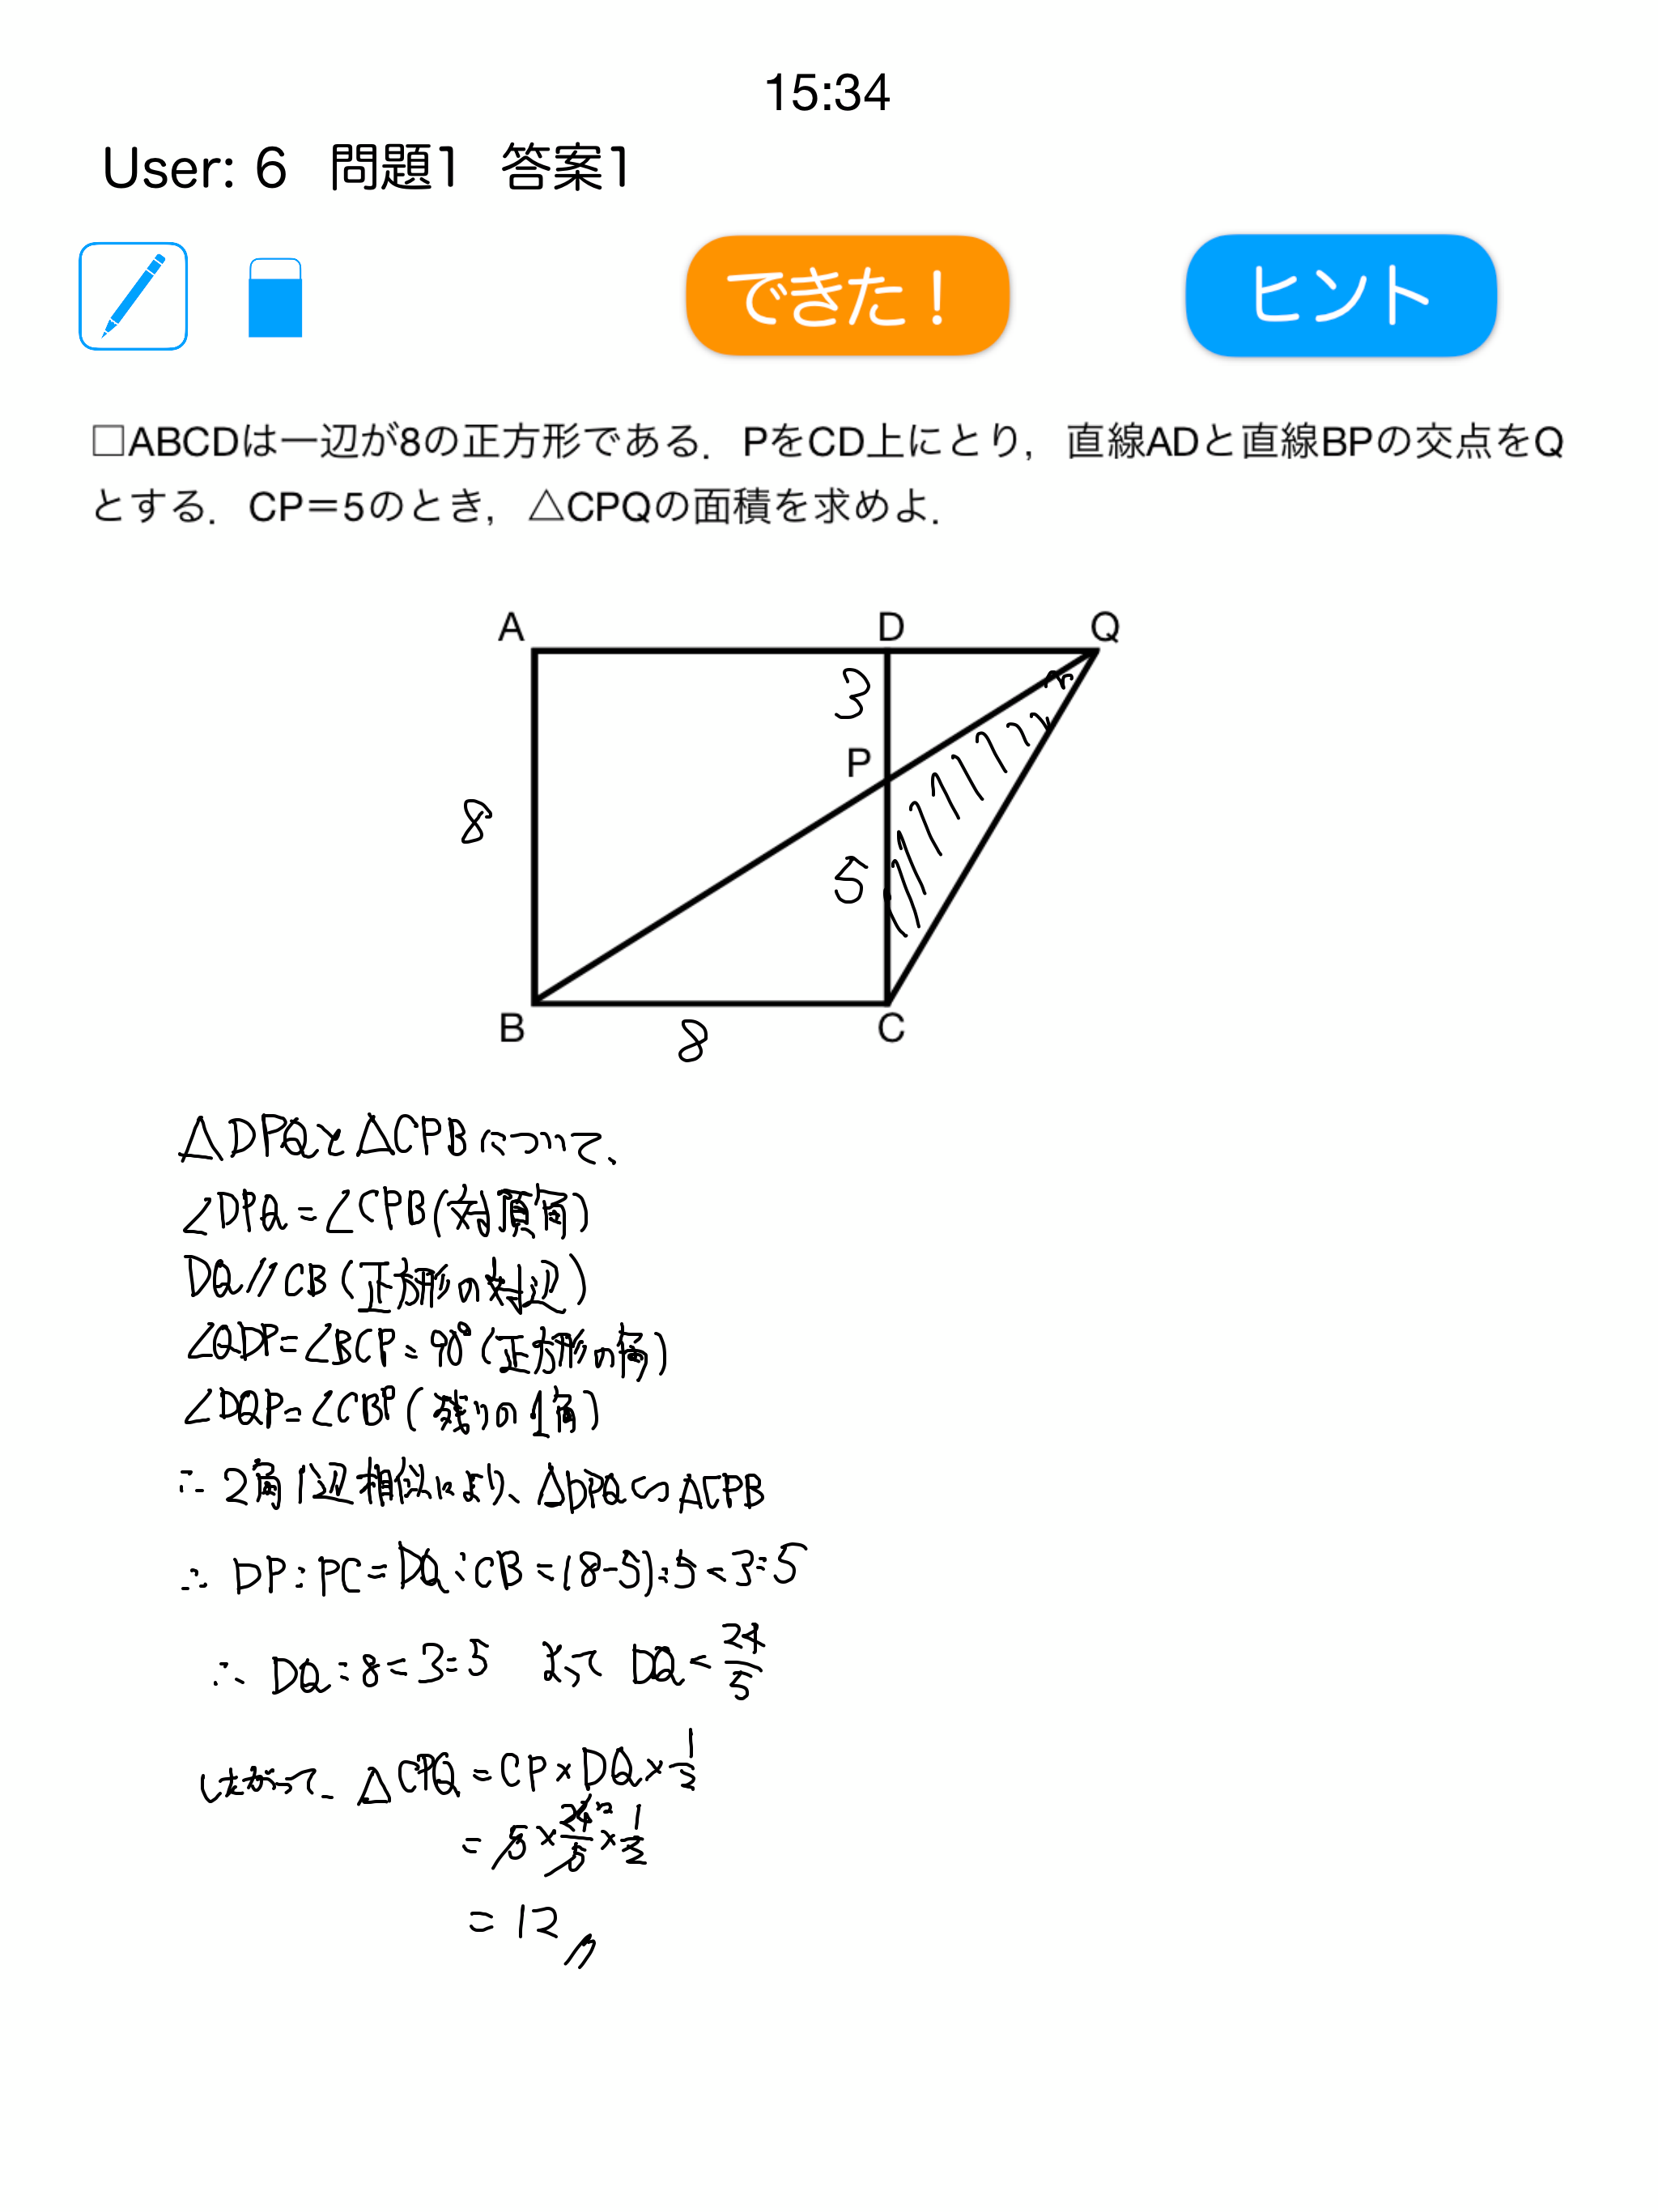 15:34
User: 6 問題1 答案1
できた！ ヒント
□ABCDは一辺が8の正方形である．PをCD上にとり，直線ADと直線BPの交点をQ
とする．CP＝5のとき，△CPQの面積を求めよ．
A D Q
3
P
8
5
B C
8
△DPQと△CPBについて、
∠DPQ=∠CPB(対頂角)
DQ//CB(正方形の対辺)
∠QDP=∠BCP=90°(正方形の角)
∠DQP=∠CBP(残りの1角)
∴2角1辺相似により、△DPQ∽△CPB
∴DP:PC=DQ:CB=(8-5):5=3:5
∴DQ:8=3:5 よって DQ=24/5
したがって、△CPQ=CP×DQ×1/2
=5×24/5×1/2
=12